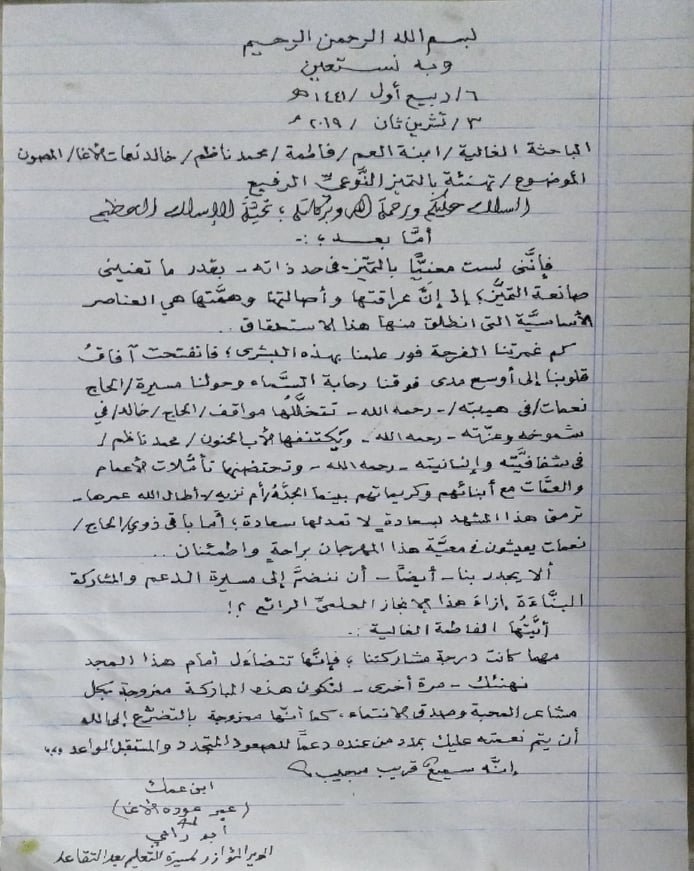 بسم الله الرحمن الرحيم
وبه نستعين
٦/ ربيع أول /١٤٤١ هـ
٣/ تشرين ثان / ٢٠١٩ م
الباحثة الغالية/ ابنة العم/ فاطمة/ محمد ناظم/ خالد نعمات الأغا/ المصون
الموضوع/ تهنئة بالتميز النَّوعيِّ الرفيع
السلام عليكم ورحمة الله وبركاته؛ تحيَّة الإسلام العظيم
أمَّا بعد؛ :-
فإنَّني لست معنيًّا بالتميّز - في حد ذاته - بقدر ما تعنيني
صانعة التميُّز؛ إذ إنَّ عراقتها وأصالتها وهمَّتها هي العناصر
الأساسيَّة التي انطلق منها هذا الاستحقاق ..
كم غمرتنا الفرحة فور علمنا بهذه البشرى؛ فانفتحت آفاقُ
قلوبنا إلى أوسع مدى فوقنا رحابة السَّماء وحولنا مسيرة/ الحاج
نعمات/ في هيبته/ - رحمه الله - تتخلَّلها مواقف/ الحاج/ خالد/ في
شموخه وعزَّته - رحمه الله - ويكتنفها الأب الحنون/ محمد ناظم/
في شفافيَّته وإنسانيته - رحمه الله - وتحتضنها تأمُّلات الأعمام
والعمَّات مع أبنائهم وكريماتهم بينما الجدَّة/ أم نزيه/ - أطال الله عمرها -
ترمق هذا المشهد بسعادةٍ لا تعدلها سعادة؛ أمَّا باقي ذوي/ الحاج/
نعمات يعيشون في معيَّة هذا المهرجان براحةٍ واطمئنان ..
ألا يجدر بنا - أيضاً - أن ننضمَّ إلى مسيرة الدعم والمشاركة
البنَّاءَة إزاءَ هذا الإنجاز العلميِّ الرائع ؟!
أيَّتُها الفاطمة الغالية :-
مهما كانت درجة مشاركتنا؛ فإنَّها تتضاءَل أمام هذا المجد
نهنئك - مرة أخرى - لتكون هذه المباركة ممزوجة بكل
مشاعر المحبة وصدق الانتماء، كما أنَّها ممزوجة بالتضرُّع إلى الله
أن يتم نعمته عليك بمدد من عنده دعماً للصعود المتجدد والمستقبل الواعد،،،
إنَّه سميعٌ قريب مجيب
ابن عمك
(عوده الأغا)
أبو رامي
المدير المؤازر لمسيرة التعليم بعد التقاعد